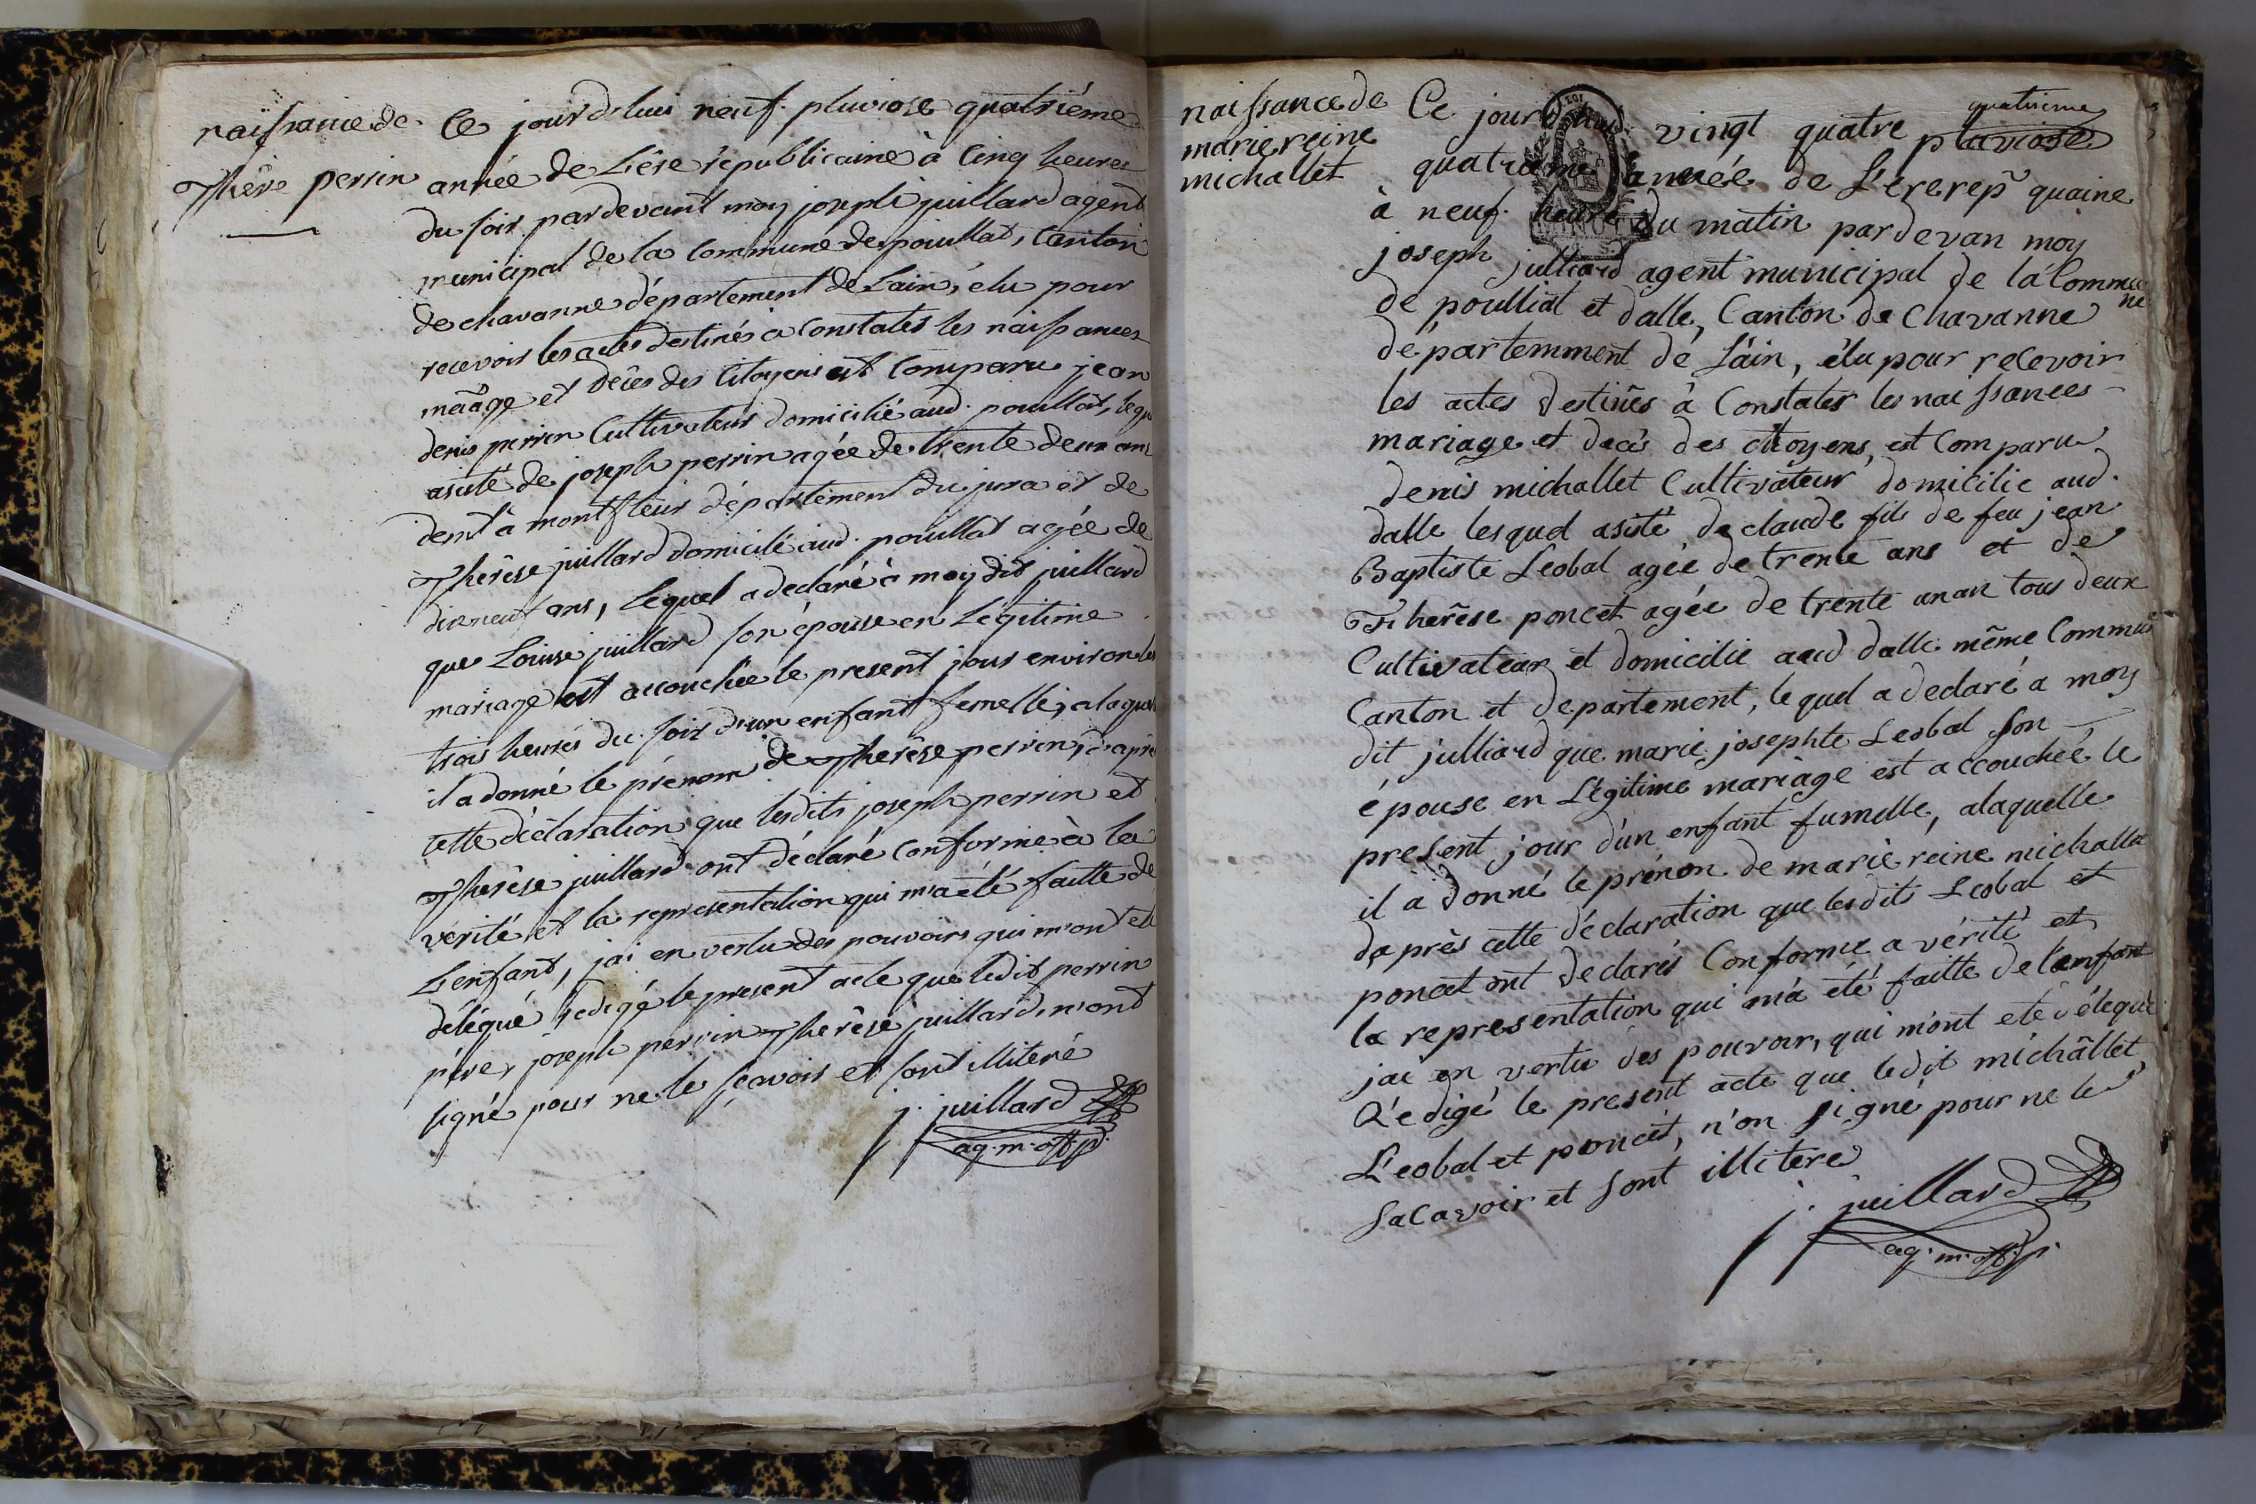 naissance de
Thérè perrin
Ce jourdhui neuf pluviose quatriéme
année de Lére républicaine à Cinq heures
du soir pardevant moy joseph juillard agent
municipal de la Commune de pouillat, Canton
de chavanne département de Lain, élu pour
recevoir les actes destinés a Constater les naissances
mariage et décès des Citoyens est Comparu jean
denis perrin Cultivateur domicilié aud. pouillat, lequ
asisté de joseph perrin agée de trente deux ans
dent a montfleur département du jura et de
Therèse juillard domicilé aud. pouillat agée de
dixneuf ans, lequel a declaré à moy dit juillard
que Louise juillard son épouse en Légitime
mariage est accouchée le present jour environ les
trois heures du soir d'un enfant femelle, alaquel
il a donné le prénom de Therèse perrin, d'aprè
cette déclaration que lesdits joseph perrin et
Therèse juillard ont déclaré conforme à la
vérité et la representation qui m'a été faitte de
L'enfant, jai en vertu des pouvoirs qui m'ont ét
délégué redigé le present acte que ledit perrin
père, joseph perrin Therèse juillard n'ont
signé pour ne le sçavoir et sont illiteré
j. juillard
ag. m. off. p.
naissance de
marie reine
michallet
quatrieme
Ce jourdhui vingt quatre pluviose
quatrieme année de L'ere rep̃quaine
à neuf heure du matin pardevan moy
joseph julliard agent municipal de la Commu
ne
de poulliat et dalle, Canton de Chavanne
département de Láin, élu pour recevoir
les actes destinés à Constater les naissances
mariage et decès des citoyens, est Comparu
denis michallet Cultivateur domicilie aud.
dalle lesquel asisté de claude fils de feu jean
Baptiste Léobal agée de trente ans et de
Therêse poncet agée de trente unan tous deux
Cultivateur et domicilie aud dalle même Commue
Canton et departement, lequel a declaré a moy
dit julliard que marie josephte Leobal son
épouse en Légitime mariage est accouchée le
present jour d'un enfant fumelle, alaquelle
il a donné le prénon de marie reine michallet
daprès cette déclaration que lesdits Leobal et
poncet ont declarés Conforme a vérité et
la representation qui m'a été faitte de l'emfant
jai en vertu des pouvoir, qui m'ont eté délegué
Rédigé le present acte que ledit michâllet
Léobal et poncet, n'on signé pour ne le
sacavoir et sont illitere
j. juillard
ag. m. off. p.